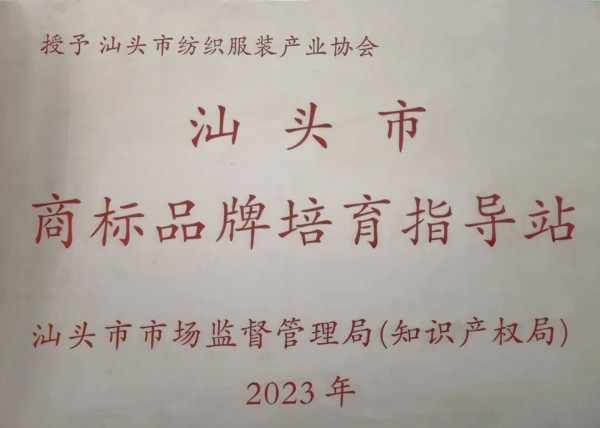 授予 汕头市纺织服装产业协会
汕头市
商标品牌培育指导站
汕头市市场监督管理局(知识产权局)
2023年